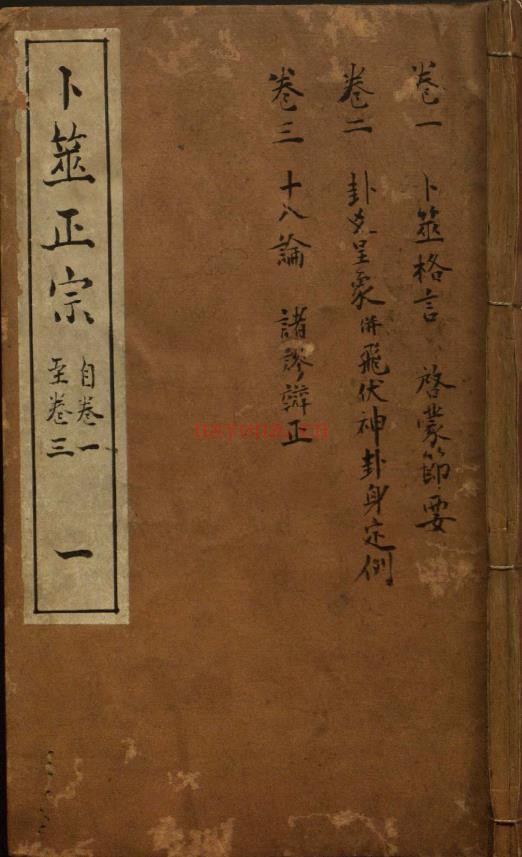 卷一　卜筮格言　啓蒙節要
卷二　卦爻呈象併飛伏神卦身定例
卷三　十八論　諸謬辯正
卜筮正宗
自卷一
至卷三
一